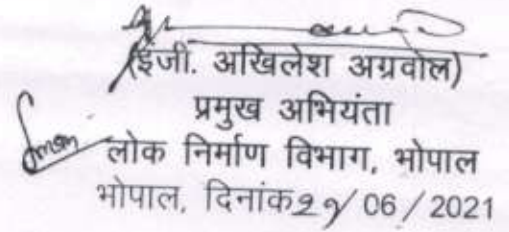 (इंजी. अखिलेश अग्रवाल)
प्रमुख अभियंता
लोक निर्माण विभाग, भोपाल
भोपाल, दिनांक / 06 / 2021